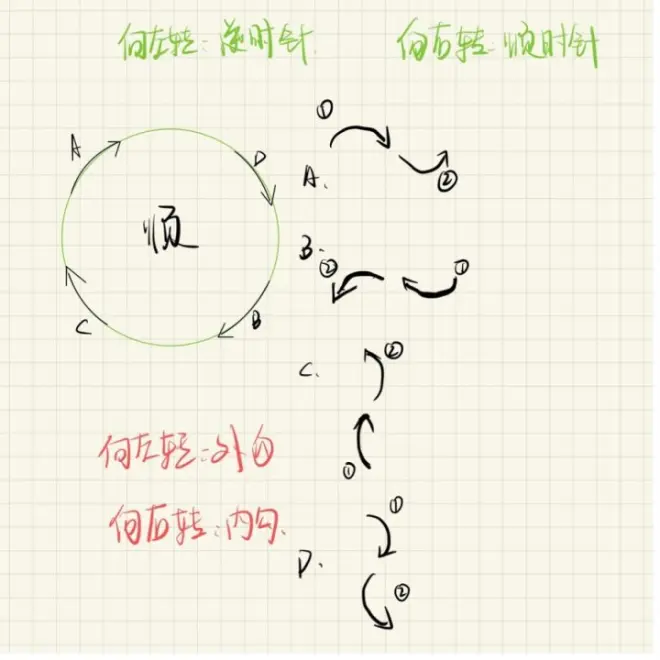 向左转:逆时针
向右转:顺时针
A
D
顺
C
B
A.
①
②
B.
②
①
C.
②
①
向左转:外勾
向右转:内勾.
D.
①
②